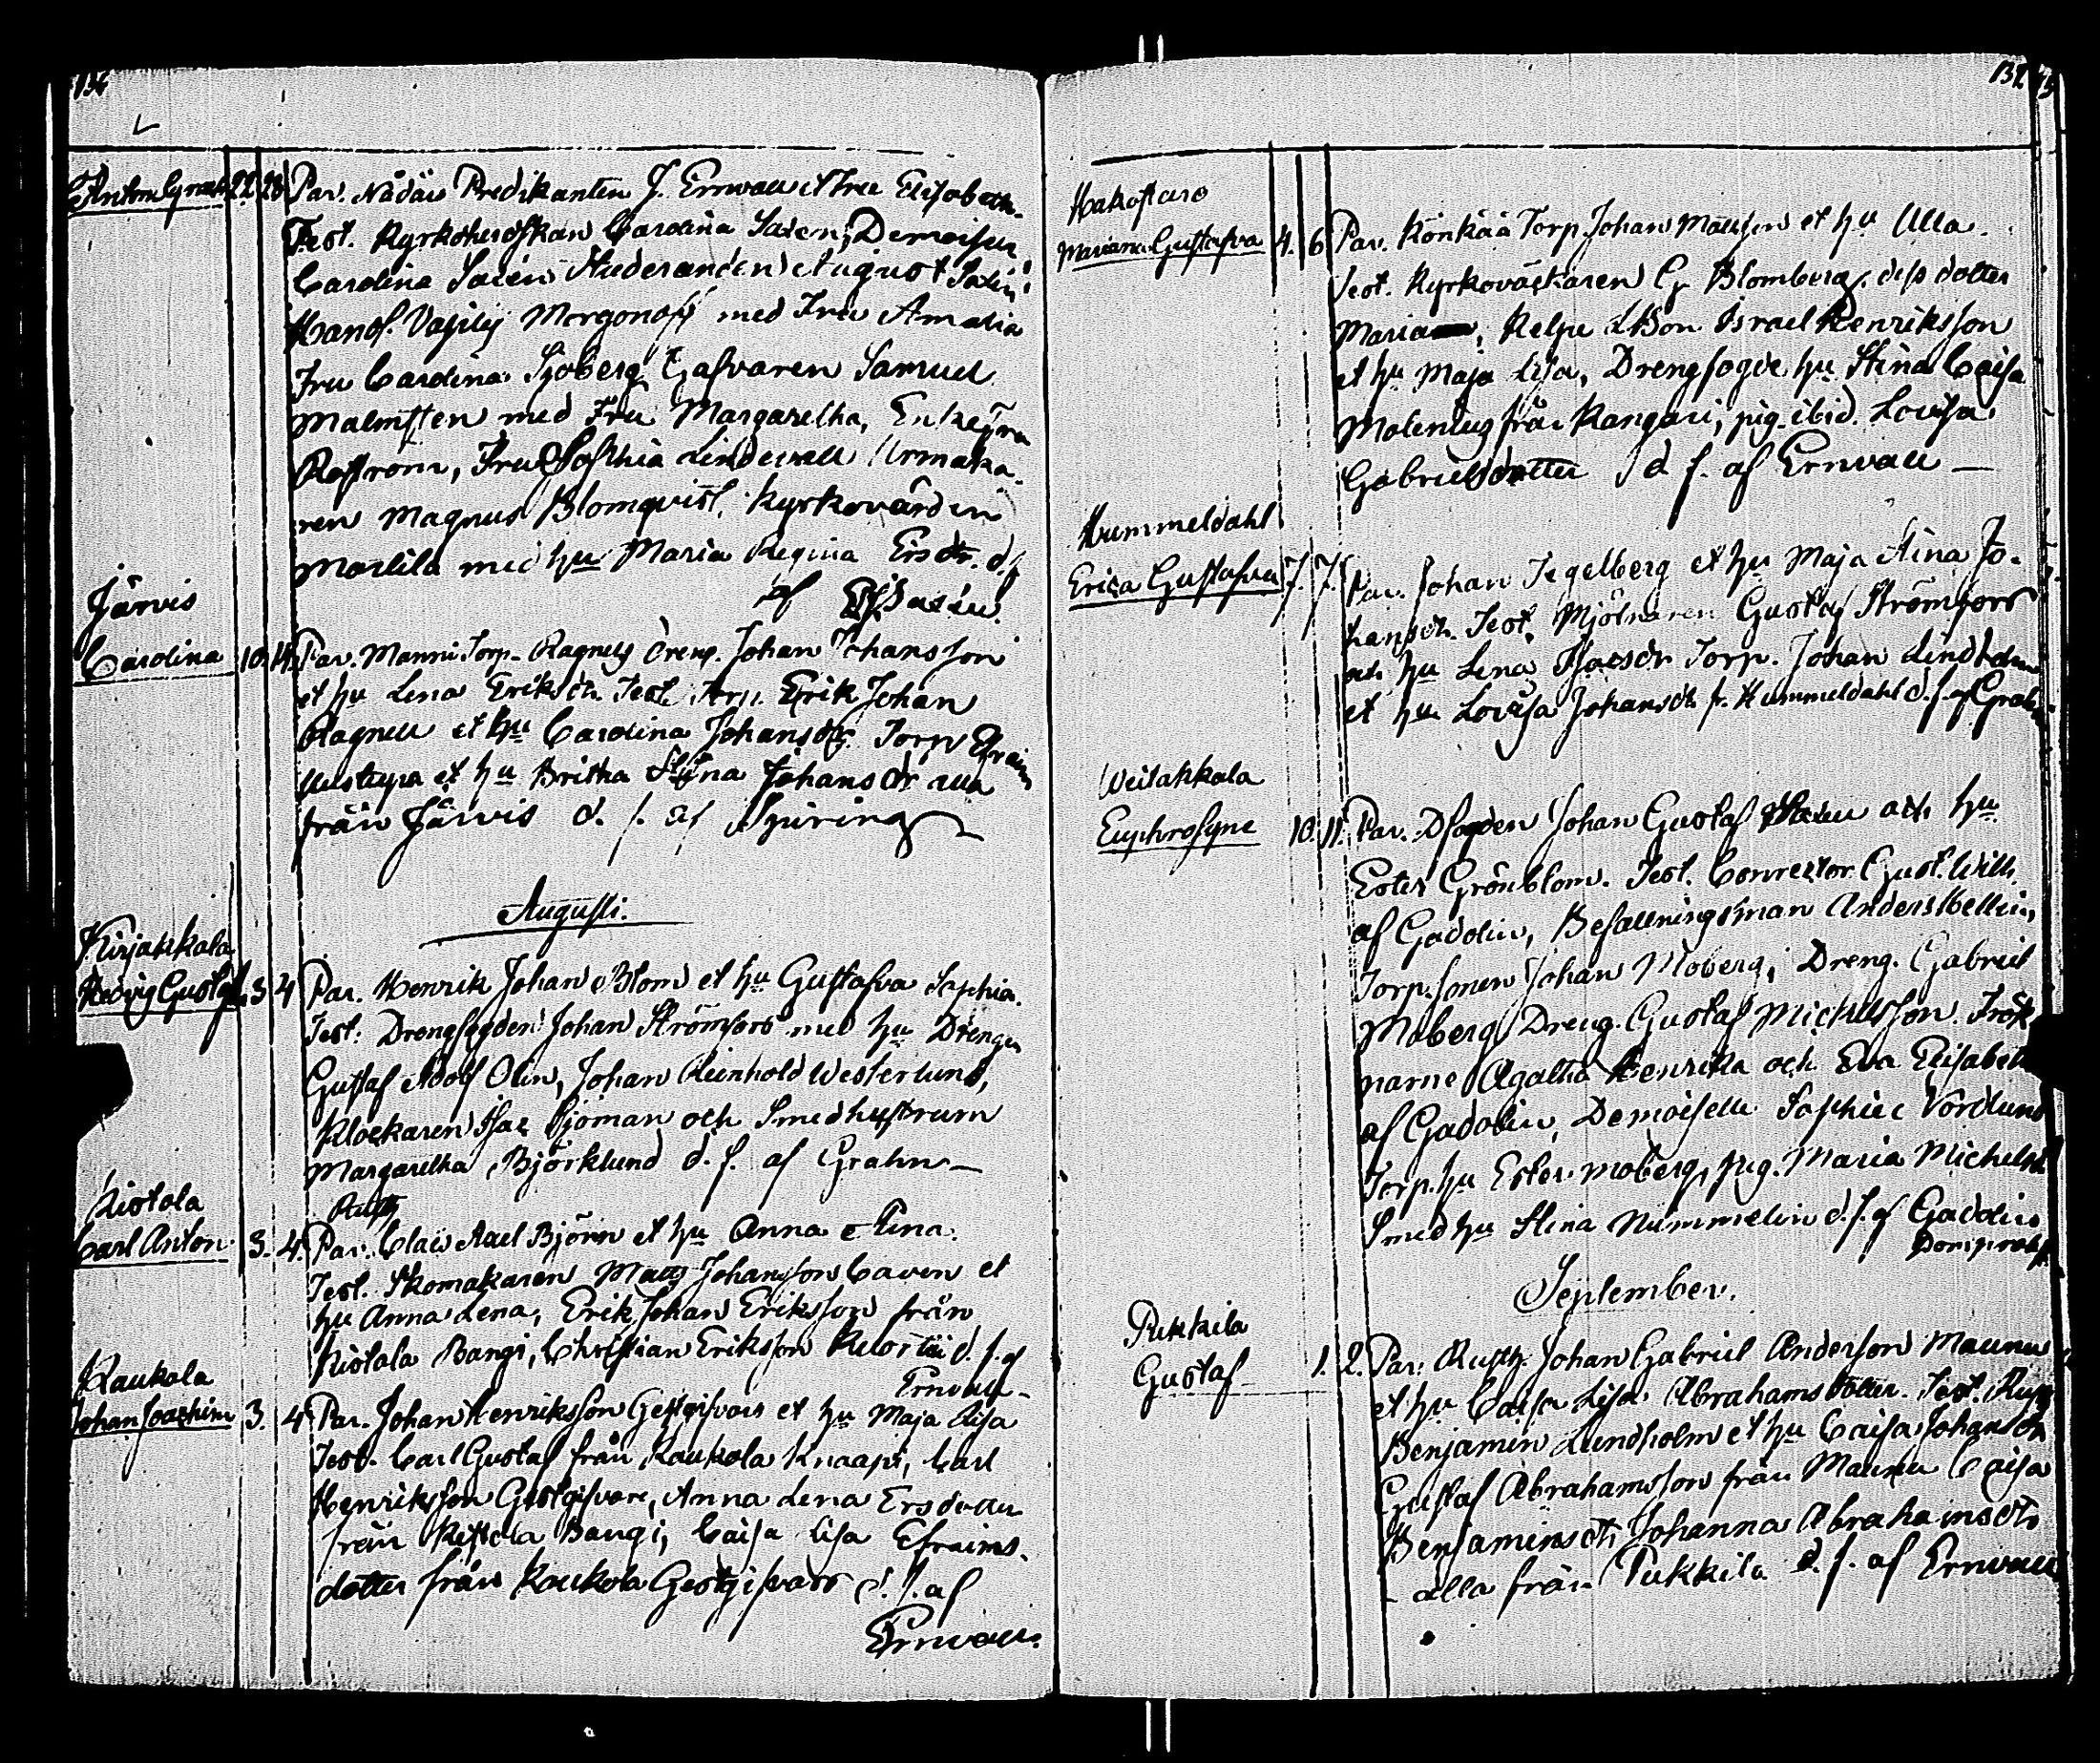 136
Anton Ignat. 22. 28. Par. Nådårs Predikanten J. Ernvall et Fru Elisabeth.
Test. Kyrkoherdskan Carolina Salen, Demoiselln
Carolina Salén Studeranden August Salén
Handl. Vasilij Morgonoff med Fru Amalia
Fru Carolina Sjöberg Gafvaren Samuel
Malmsten med Fru Margaretha, Enkefru
Rostrom, Fru Sophia Lindewall Urmaka-
ren Magnus Blomqvist, Kyrkovärden
Marlila med hu Maria Regina Ersdr. d. f.
af Salén.
Järvis
Carolina 10. 14. Par. Manni Torp. Ragnells dreng. Johan Johansson
et hu Lena Eriksdr. Test. Torp. Erik Johan
Ragnell et hu Carolina Johansdr. Torp Efraim
et hu Britha Stina Johansdr alla
från Järvis d. f. af Njuring
Augusti.
Kirjakkala
Hedvig Gustafva 3 4 Par. Henrik Johan Blom et hu Gustafva Sophia.
Test: Drengfogden Johan Strömfors med hu Drengen
Gustaf Adolf Olin, Johan Reinhold Westerlund,
Klockaren Isac Sjöman och Smedhustrurn
Margaretha Björklund d. f. af Grahn
Kistola
Rusth
Carl Anton. 3. 4. Par. Clas Axel Björn et hu Anna Stina.
Test. Skomakaren Matts Johansson Caven et
hu Anna Lena, Erik Johan Eriksson från
Kistola Bangi, Christian Eriksson d. f. af
Ernvall
Kaukola
Johan Joachim 3. 4 Par. Johan Henriksson Gestgifvars et hu Maja Lisa
Test. Carl Gustaf från Kaukola Knaapi, Carl
Henriksson Gestgifvare, Anna Lena Ersdotter
från Kistola Bangi, Caisa Lisa Efraims-
dotter från Kaukola Gestgifvars d. f. af
Ernvall.
137
Hakostaro
Mariana Gustafva 4. 6 Par. Könkää Torp Johan Mattsson et hu Ulla.
Test. Kyrkoväktaren G. Blomberg, dess dotter
Maria, Kelpe LBon Israel Henriksson
et hu Maja Lisa, Drengfogde hu Stina Caisa
Molenius från Kangari, pig. ibid. Lovisa
Gabrielsdotter d f. af Ernvall
Hummeldahl
Erica Gustafva 7. 7. Par. Johan Tegelberg et hu Maja Stina Jo-
hansdr. Test. Mjölnaren Gustaf Strömfors
och hu Lena Isacsdr Torp. Johan Lindholm
et hu Lovisa Johansdr fr. Hummeldahl d. f. af Grahn
Weitakkala
Euphrosyne 10. 11. Par. Dfogden Johan Gustaf och hu
Ester Grönblom. Test. Conrector Gust. Wilh.
af Gadolin, Befallningsman Anders Mellin,
Torp. sonen Johan Moberg, Dreng. Gabriel
Moberg, Dreng. Gustaf Michelsson. Frök-
narne Agatha Henrika och Eva Elisabeth
af Gadolin, Demoiselle Sophie Nordlund
Torp. hu Ester Moberg, pig. Maria Michelsdr
Smed hu Stina Nummelin d. f. af Gadolin
Domprost
September.
Pukkila
Gustaf 1. 2. Par: Rusth. Johan Gabriel Anderson Maunu
et hu Caisa Lisa Abrahamsdotter. Test. Rusth
Benjamin Lundholm et hu Caisa Johansdr
Gustaf Abrahamsson från Maunu Caisa
Benjaminsdr, Johanna Abrahamsdr
alla från Pukkila d. f. af Ernvall